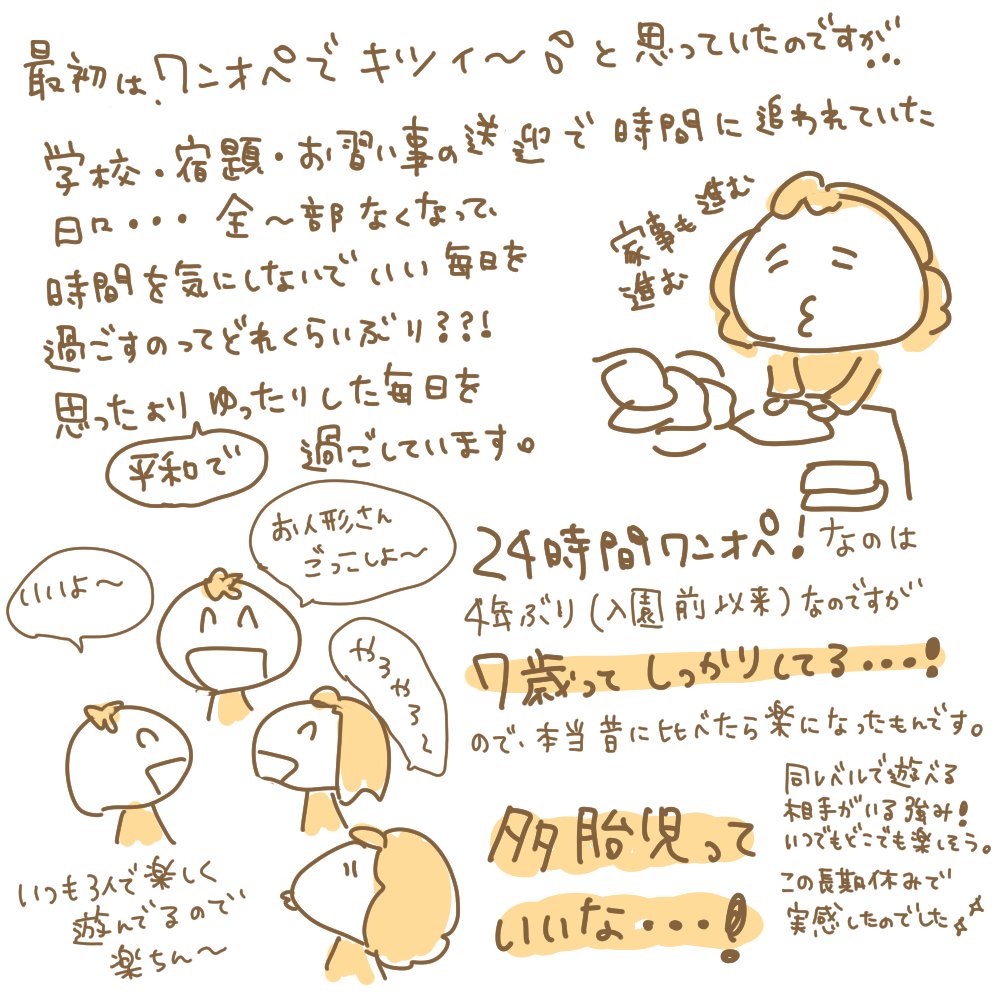 最初は、ワンオペでキツイ〜と思っていたのですが…
学校・宿題・お習い事の送迎で時間に追われていた
日々・・・全〜部なくなって、
時間を気にしないでいい毎日を
過ごすのってどれくらいぶり??!
思ったよりゆったりした毎日を
過ごしています。
平和で
家事も進む
進む
お人形さん
ごっこしよ〜
いいよ〜
やろやろ〜
いつも3人で楽しく
遊んでるので
楽ちん〜
24時間ワンオペ!なのは
4年ぶり(入園前以来)なのですが
7歳ってしっかりしてる・・・・!
ので、本当昔に比べたら楽になったもんです。
多胎児って
いいな・・・!
同レベルで遊べる
相手がいる強み!
いつでもどこでも楽しそう。
この長期休みで
実感したのでした